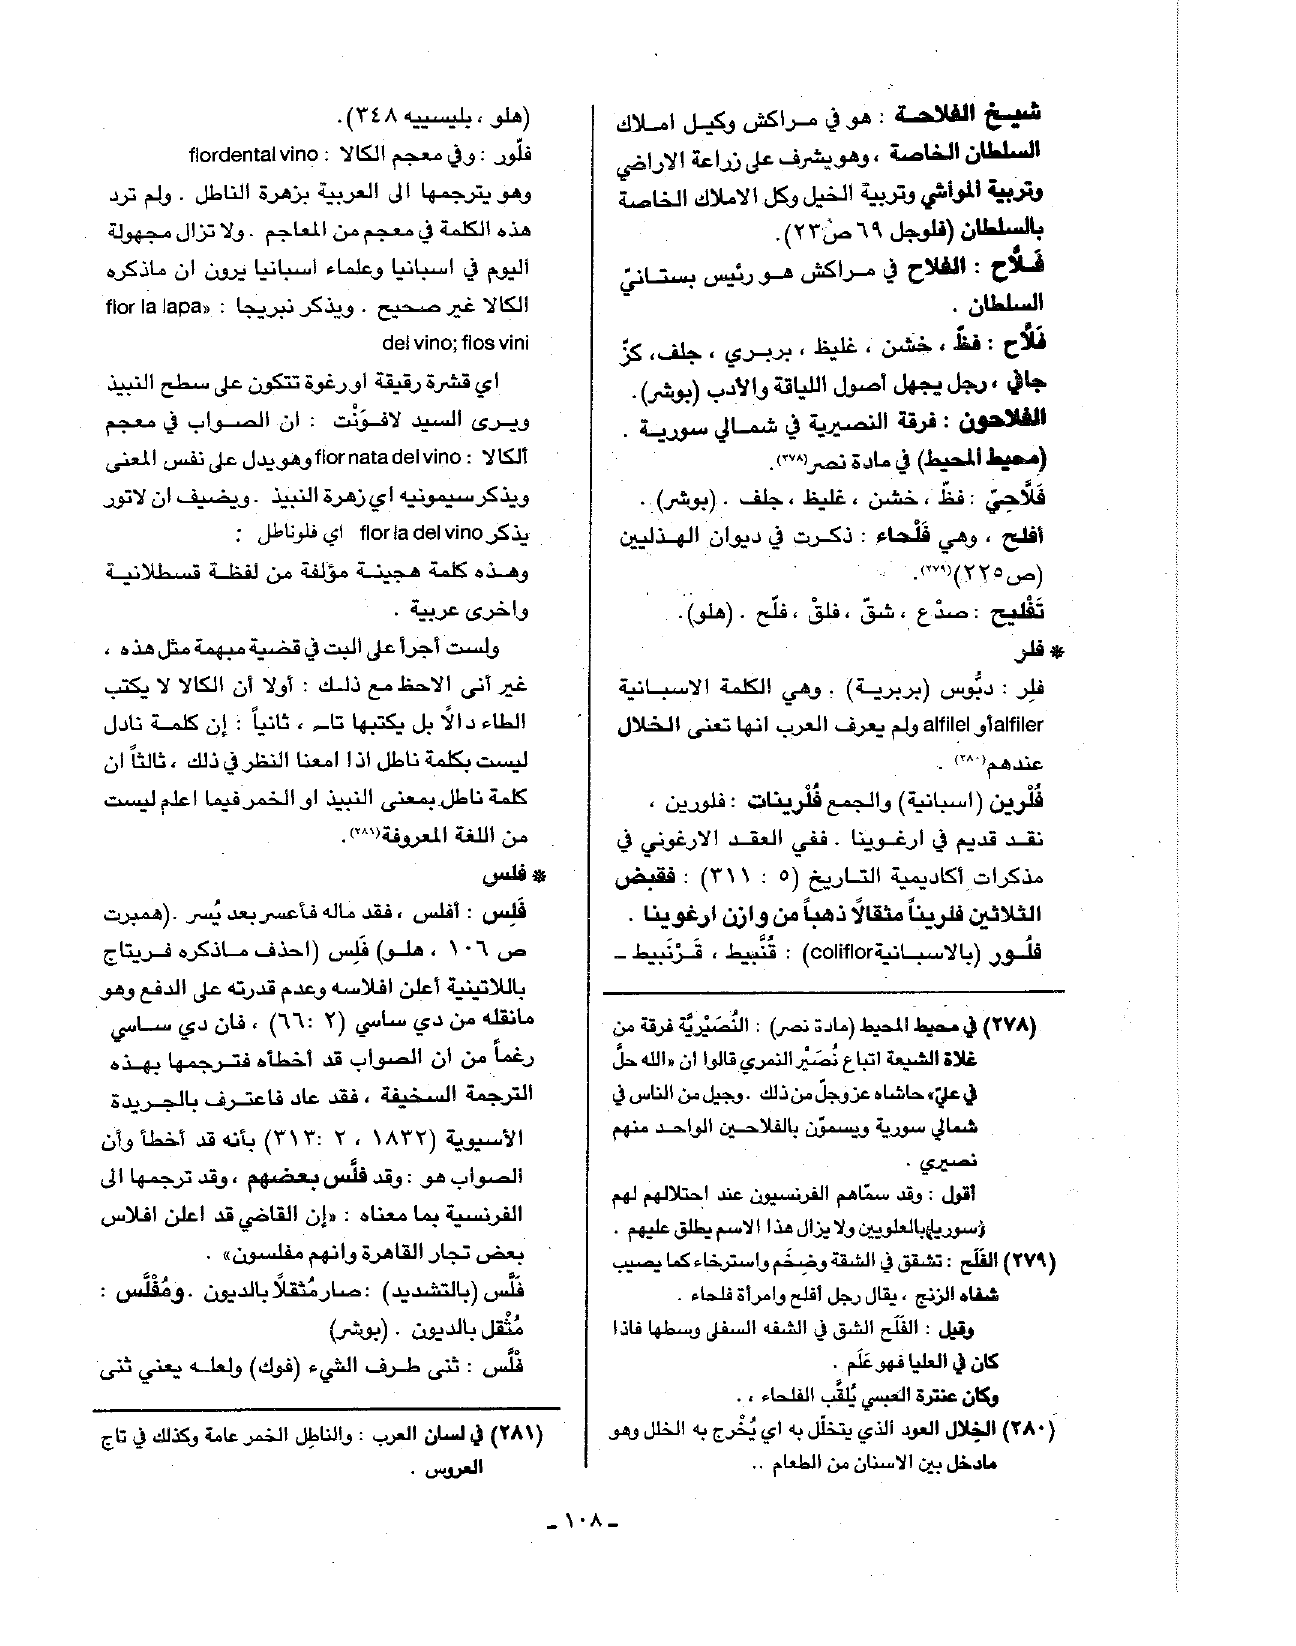 شيخ الفلاحة : هو في مراكش وكيل املاك
السلطان الخاصة ، وهو يشرف على زراعة الاراضي
وتربية المواشي وتربية الخيل وكل الاملاك الخاصة
بالسلطان (فلوجل ٦٩ ص٢٣).
فَلاَّح : الفلاح في مراكش هو رئيس بستانيّ
السلطان .
فَلاَّح : فظّ ، خشن ، غليظ ، بربري ، جلف، كزّ
جافي ، رجل يجهل أصول اللياقة والأدب (بوشر).
الفلاحون : فرقة النصيرية في شمالي سورية .
(محيط المحيط) في مادة نصر(٢٧٨).
فَلَّاحِيّ : فظّ ، خشن ، غليظ ، جلف . (بوشر) .
أفلح ، وهي فَلْحاء : ذكرت في ديوان الهذليين
(ص٢٢٥)(٢٧٩).
تَفْليح : صدْع ، شقّ ، فلقْ ، فلّح . (هلو).
* فلر
فلِر : دبُّوس (بربرية) . وهي الكلمة الاسبانية
alfiler أو alfilel ولم يعرف العرب انها تعنى الخلال
عندهم(٢٨٠) .
فُلْرين (اسبانية) والجمع فُلْرينات : فلورين ،
نقد قديم في ارغوينا . ففي العقد الارغوني في
مذكرات أكاديمية التاريخ (٥ : ٣١١) : فقبض
الثلاثين فلريناً مثقالاً ذهباً من وازن ارغوينا .
فلُور (بالاسبانية coliflor) : قُنَّبيط ، قَرْنَبيط ـ
(٢٧٨) في محيط المحيط (مادة نصر) : النُصَيْريَّة فرقة من
غلاة الشيعة اتباع نُصَيْر النمري قالوا ان «الله حلَّ
في عليّ» حاشاه عز وجلّ من ذلك . وجيل من الناس في
شمالي سورية ويسموّن بالفلاحين الواحد منهم
نصيري .
أقول : وقد سمّاهم الفرنسيون عند احتلالهم لهم
(سوريا) بالعلويين ولا يزال هذا الاسم يطلق عليهم .
(٢٧٩) الفَلَح : تشقق في الشفة وضخَم واسترخاء كما يصيب
شفاه الزنج ، يقال رجل أفلح وامرأة فلحاء .
وقيل : الفَلَح الشق في الشفه السفلى وسطها فاذا
كان في العليا فهو عَلَم .
وكان عنترة العبسي يُلقَّب الفلحاء ، .
(٢٨٠) الخِلال العود الذي يتخلّل به اي يُخْرج به الخلل وهو
مادخل بين الاسنان من الطعام ..
(هلو ، بليسييه ٣٤٨).
فلّور : وفي معجم الكالا : flordental vino
وهو يترجمها الى العربية بزهرة الناطل . ولم ترد
هذه الكلمة في معجم من المعاجم . ولا تزال مجهولة
اليوم في اسبانيا وعلماء اسبانيا يرون ان ماذكره
الكالا غير صحيح . ويذكر نبريجا : «flor la lapa
del vino; flos vini
اي قشرة رقيقة أو رغوة تتكون على سطح النبيذ
ويرى السيد لافوَنْت : ان الصواب في معجم
ألكالا : flor nata del vino وهو يدل على نفس المعنى
ويذكر سيمونيه اي زهرة النبيذ . ويضيف ان لاتور
يذكر flor la del vino اي فلوناطل :
وهذه كلمة هجينة مؤلفة من لفظة قسطلانية
واخرى عربية .
ولست أجرأ على البت في قضية مبهمة مثل هذه ،
غير أنى الاحظ مع ذلك : أولا أن الكالا لا يكتب
الطاء دالاً بل يكتبها تاء ، ثانياً : إن كلمة نادل
ليست بكلمة ناطل اذا امعنا النظر في ذلك ، ثالثاً ان
كلمة ناطل بمعنى النبيذ او الخمر فيما اعلم ليست
من اللغة المعروفة(٢٨١).
* فلس
فَلِس : أفلس ، فقد ماله فأعسر بعد يُسر . (همبرت
ص ١٠٦ ، هلو) فَلِس (احذف ماذكره فريتاج
باللاتينية أعلن افلاسه وعدم قدرته على الدفع وهو
مانقله من دي ساسي (٢ :٦٦) ، فان دي ساسي
رغماً من ان الصواب قد أخطأه فترجمها بهذه
الترجمة السخيفة ، فقد عاد فاعترف بالجريدة
الأسيوية (١٨٣٢ ، ٢ :٣١٣) بأنه قد أخطأ وأن
الصواب هو : وقد فلَّس بعضهم ، وقد ترجمها الى
الفرنسية بما معناه : «إن القاضي قد اعلن افلاس
بعض تجار القاهرة وانهم مفلسون» .
فَلَّس (بالتشديد) : صار مُثقلاً بالديون . ومُفْلَّس :
مُثْقل بالديون . (بوشر)
فلَّس : ثنى طرف الشيء (فوك) ولعله يعني ثنى
(٢٨١) في لسان العرب : والناطِل الخمر عامة وكذلك في تاج
العروس .
ـ ١٠٨ ـ